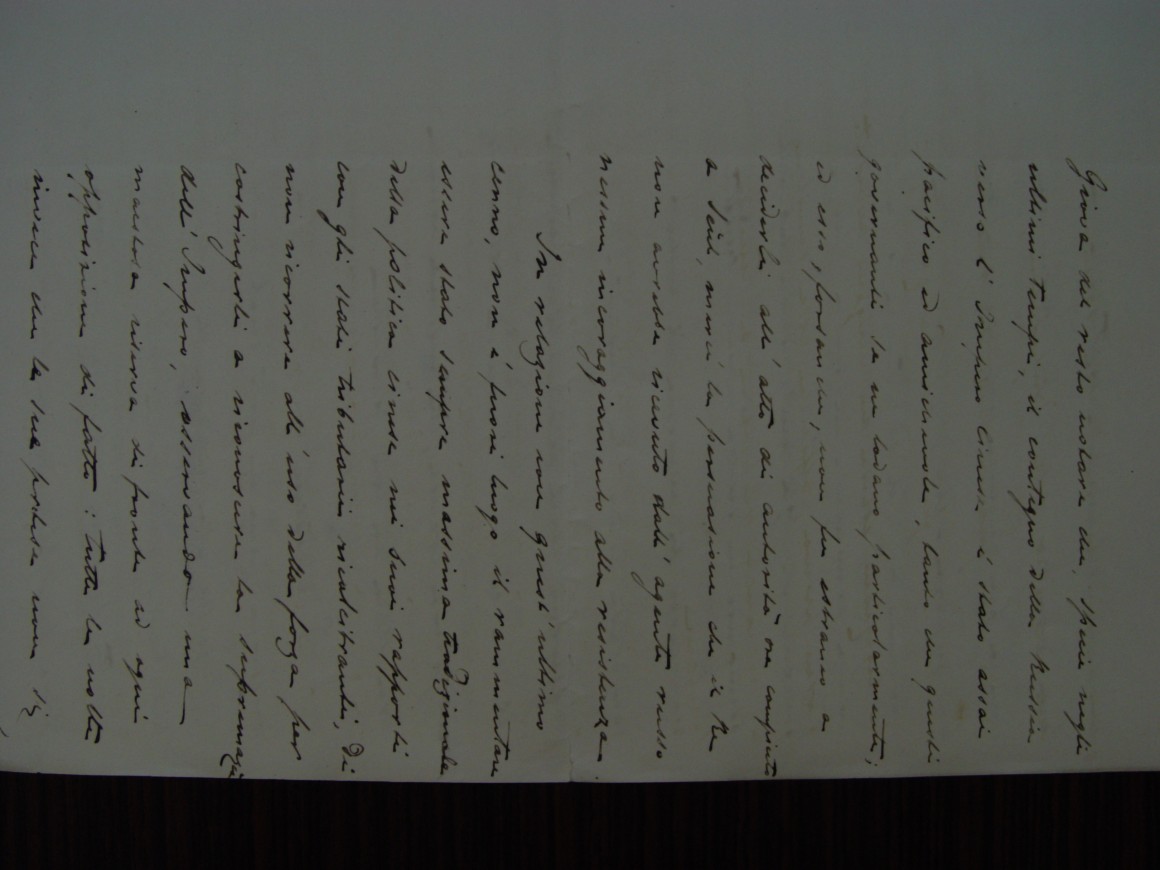 Giova del resto notare che, specie negli
ultimi tempi, il contegno della Russia
verso l'Impero cinese è stato assai
pacifico ed amichevole, tanto che questi
governanti se ne lodano particolarmente;
ed esso, forsanche, non fu estraneo a
deciderli all'atto di autorità ora compiuto
a Seül, mercè la persuasione che il Re
non avrebbe ricevuto dall'agente russo
nessun incoraggiamento alla resistenza.
In relazione con quest'ultimo
cenno, non è fuori luogo il rammentare
essere stato sempre massima tradizionale
della politica cinese nei suoi rapporti
con gli stati tributarii ricalcitranti, di
non ricorrere all'uso della forza per
costringerli a riconoscere la supremazia
dell'Impero, osservando una
maestosa riserva di fronte ad ogni
opposizione di fatto: tutte le volte
invece che le sue pretese non si